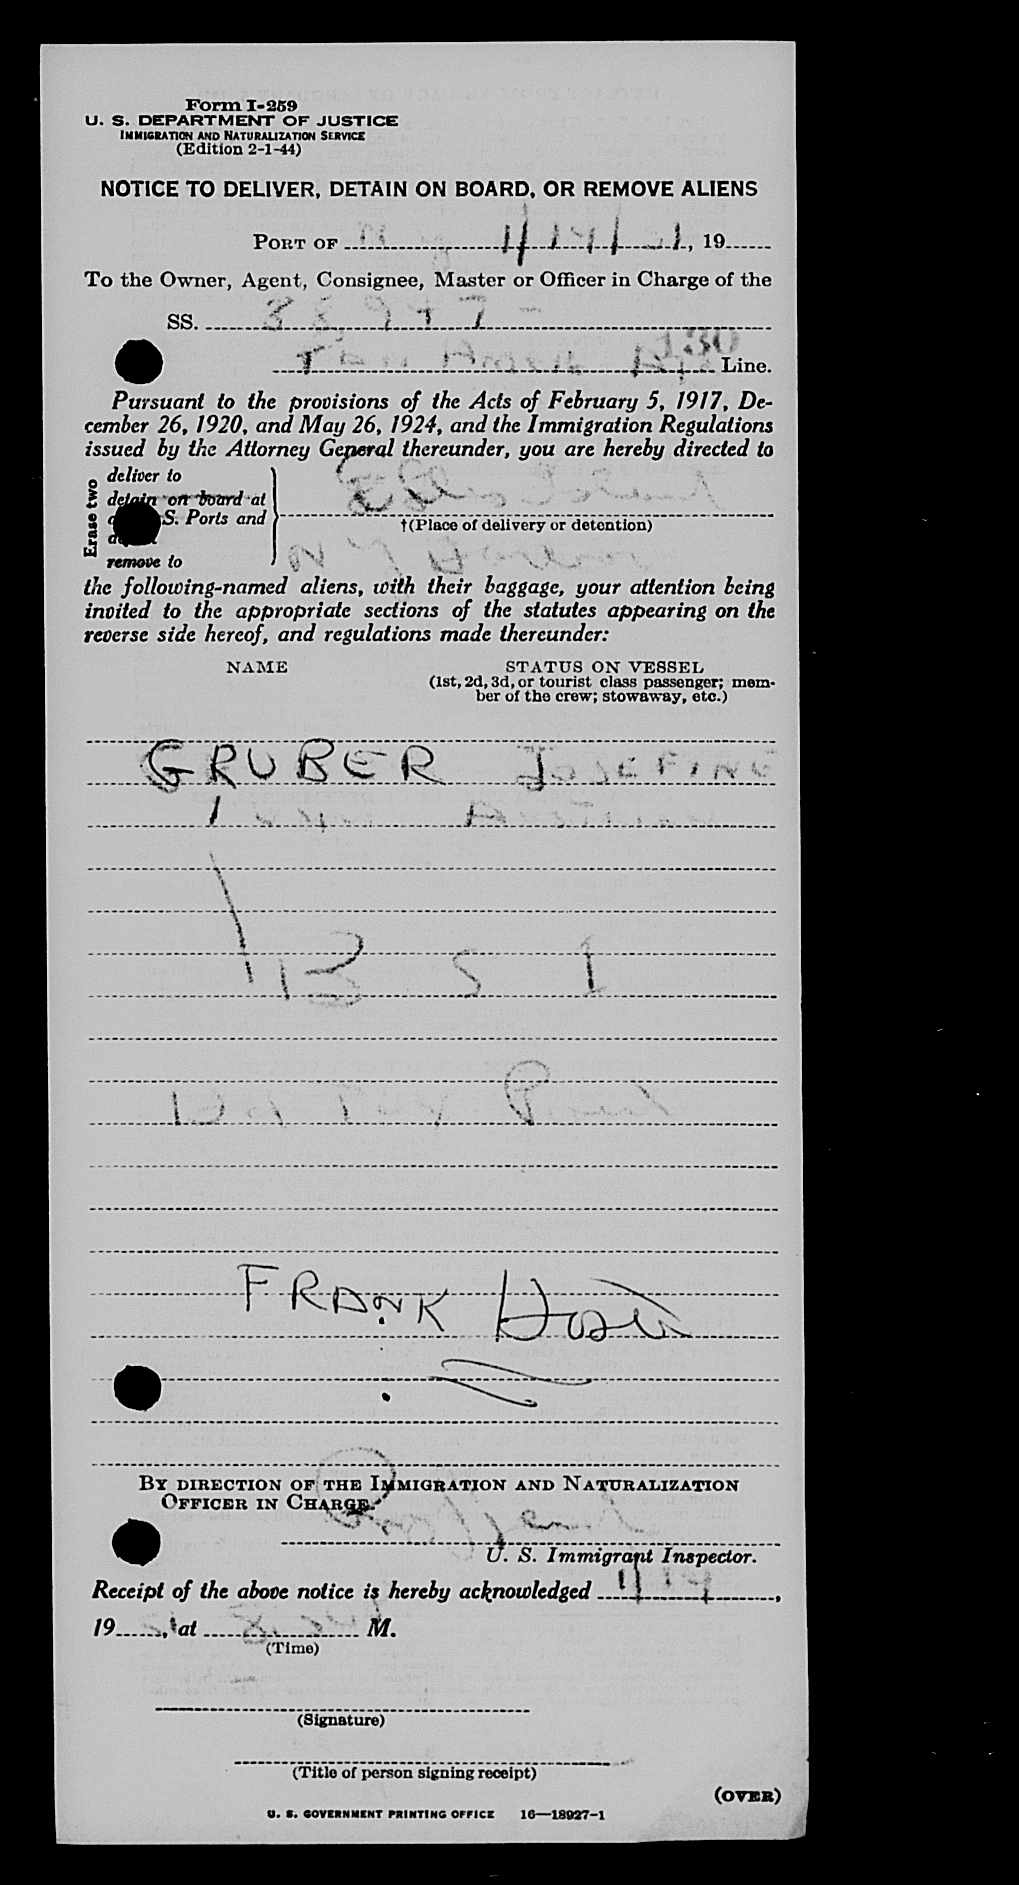 Form I-259
U. S. DEPARTMENT OF JUSTICE
IMMIGRATION AND NATURALIZATION SERVICE
(Edition 2-1-44)
NOTICE TO DELIVER, DETAIN ON BOARD, OR REMOVE ALIENS
PORT OF 1/14/51, 19
To the Owner, Agent, Consignee, Master or Officer in Charge of the
SS. 88947-
130
Line.
Pursuant to the provisions of the Acts of February 5, 1917, De-
cember 26, 1920, and May 26, 1924, and the Immigration Regulations
issued by the Attorney General thereunder, you are hereby directed to
Erase two
deliver to
detain on board at
S. Ports and
remove to
†(Place of delivery or detention)
the following-named aliens, with their baggage, your attention being
invited to the appropriate sections of the statutes appearing on the
reverse side hereof, and regulations made thereunder:
NAME STATUS ON VESSEL
(1st, 2d, 3d, or tourist class passenger; mem-
ber of the crew; stowaway, etc.)
GRUBER JOSEFINE
B S I
FRANK
BY DIRECTION OF THE IMMIGRATION AND NATURALIZATION
OFFICER IN CHARGE.
U. S. Immigrant Inspector.
Receipt of the above notice is hereby acknowledged 1/14,
19, at M.
(Time)
(Signature)
(Title of person signing receipt)
(OVER)
U. S. GOVERNMENT PRINTING OFFICE 16—18927-1